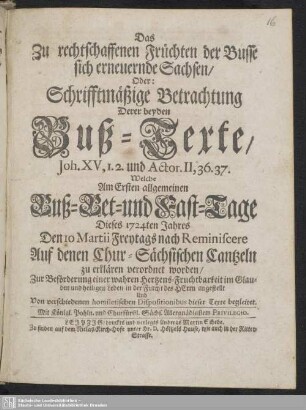 16
Das
Zu rechtschaffenen Früchten der Busse
sich erneuernde Sachsen/
Oder:
Schrifftmäßige Betrachtung
Derer beyden
Buß-Texte/
Joh. XV, 1. 2. und Actor. II, 36. 37.
Welche
Am Ersten allgemeinen
Buß-Bet-und Fast-Tage
Dieses 1724ten Jahres
Den 10 Martii Freytags nach Reminiscere
Auf denen Chur-Sächsischen Cantzeln
zu erklären verordnet worden/
Zur Beförderung einer wahren Hertzens-Fruchtbarkeit im Glau-
ben und heiligen Leben in der Furcht des HErrn angestellt
Und
Von verschiedenen homiletischen Dispositionibus dieser Texte begleitet.
Mit Königl. Pohln. und Churfürstl. Sächs. Allergnädigstem PRIVILEGIO.
LEIPZIG, druckts und verlegts Andreas Martin Schede,
Zu finden auf dem Neuen Kirch-Hofe unter Hr. D. Hause, wie auch in der Ritter-
Strasse.